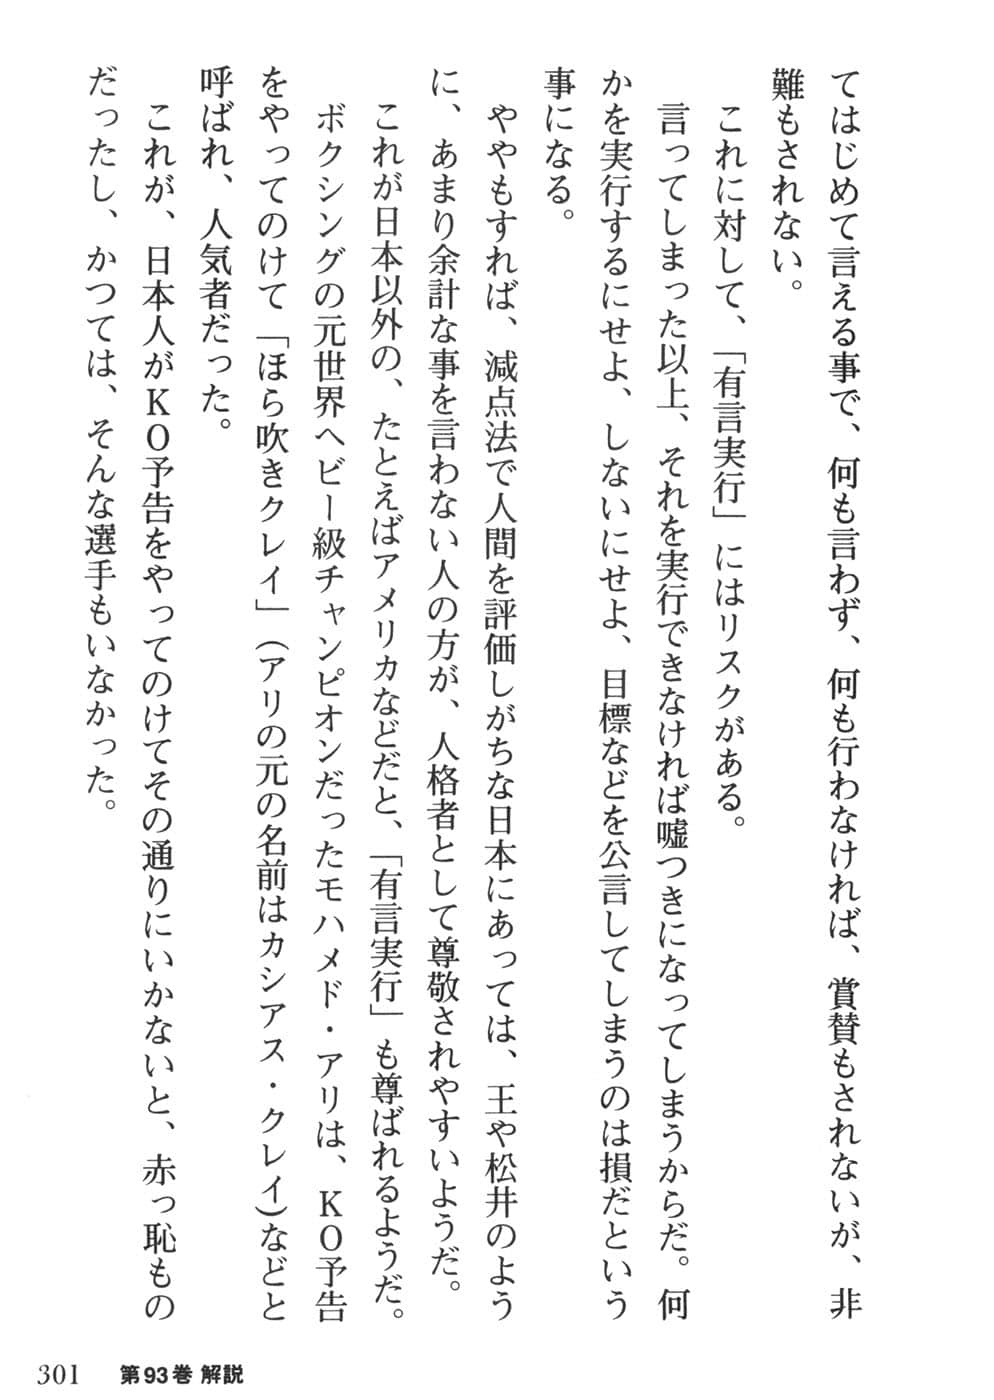 てはじめて言える事で、何も言わず、何も行わなければ、賞賛もされないが、非
難もされない。
これに対して、「有言実行」にはリスクがある。
言ってしまった以上、それを実行できなければ嘘つきになってしまうからだ。何
かを実行するにせよ、しないにせよ、目標などを公言してしまうのは損だという
事になる。
ややもすれば、減点法で人間を評価しがちな日本にあっては、王や松井のよう
に、あまり余計な事を言わない人の方が、人格者として尊敬されやすいようだ。
これが日本以外の、たとえばアメリカなどだと、「有言実行」も尊ばれるようだ。
ボクシングの元世界ヘビー級チャンピオンだったモハメド・アリは、KO予告
をやってのけて「ほら吹きクレイ」（アリの元の名前はカシアス・クレイ)などと
呼ばれ、人気者だった。
これが、日本人がKO予告をやってのけてその通りにいかないと、赤っ恥もの
だったし、かつては、そんな選手もいなかった。
301 第93巻 解説